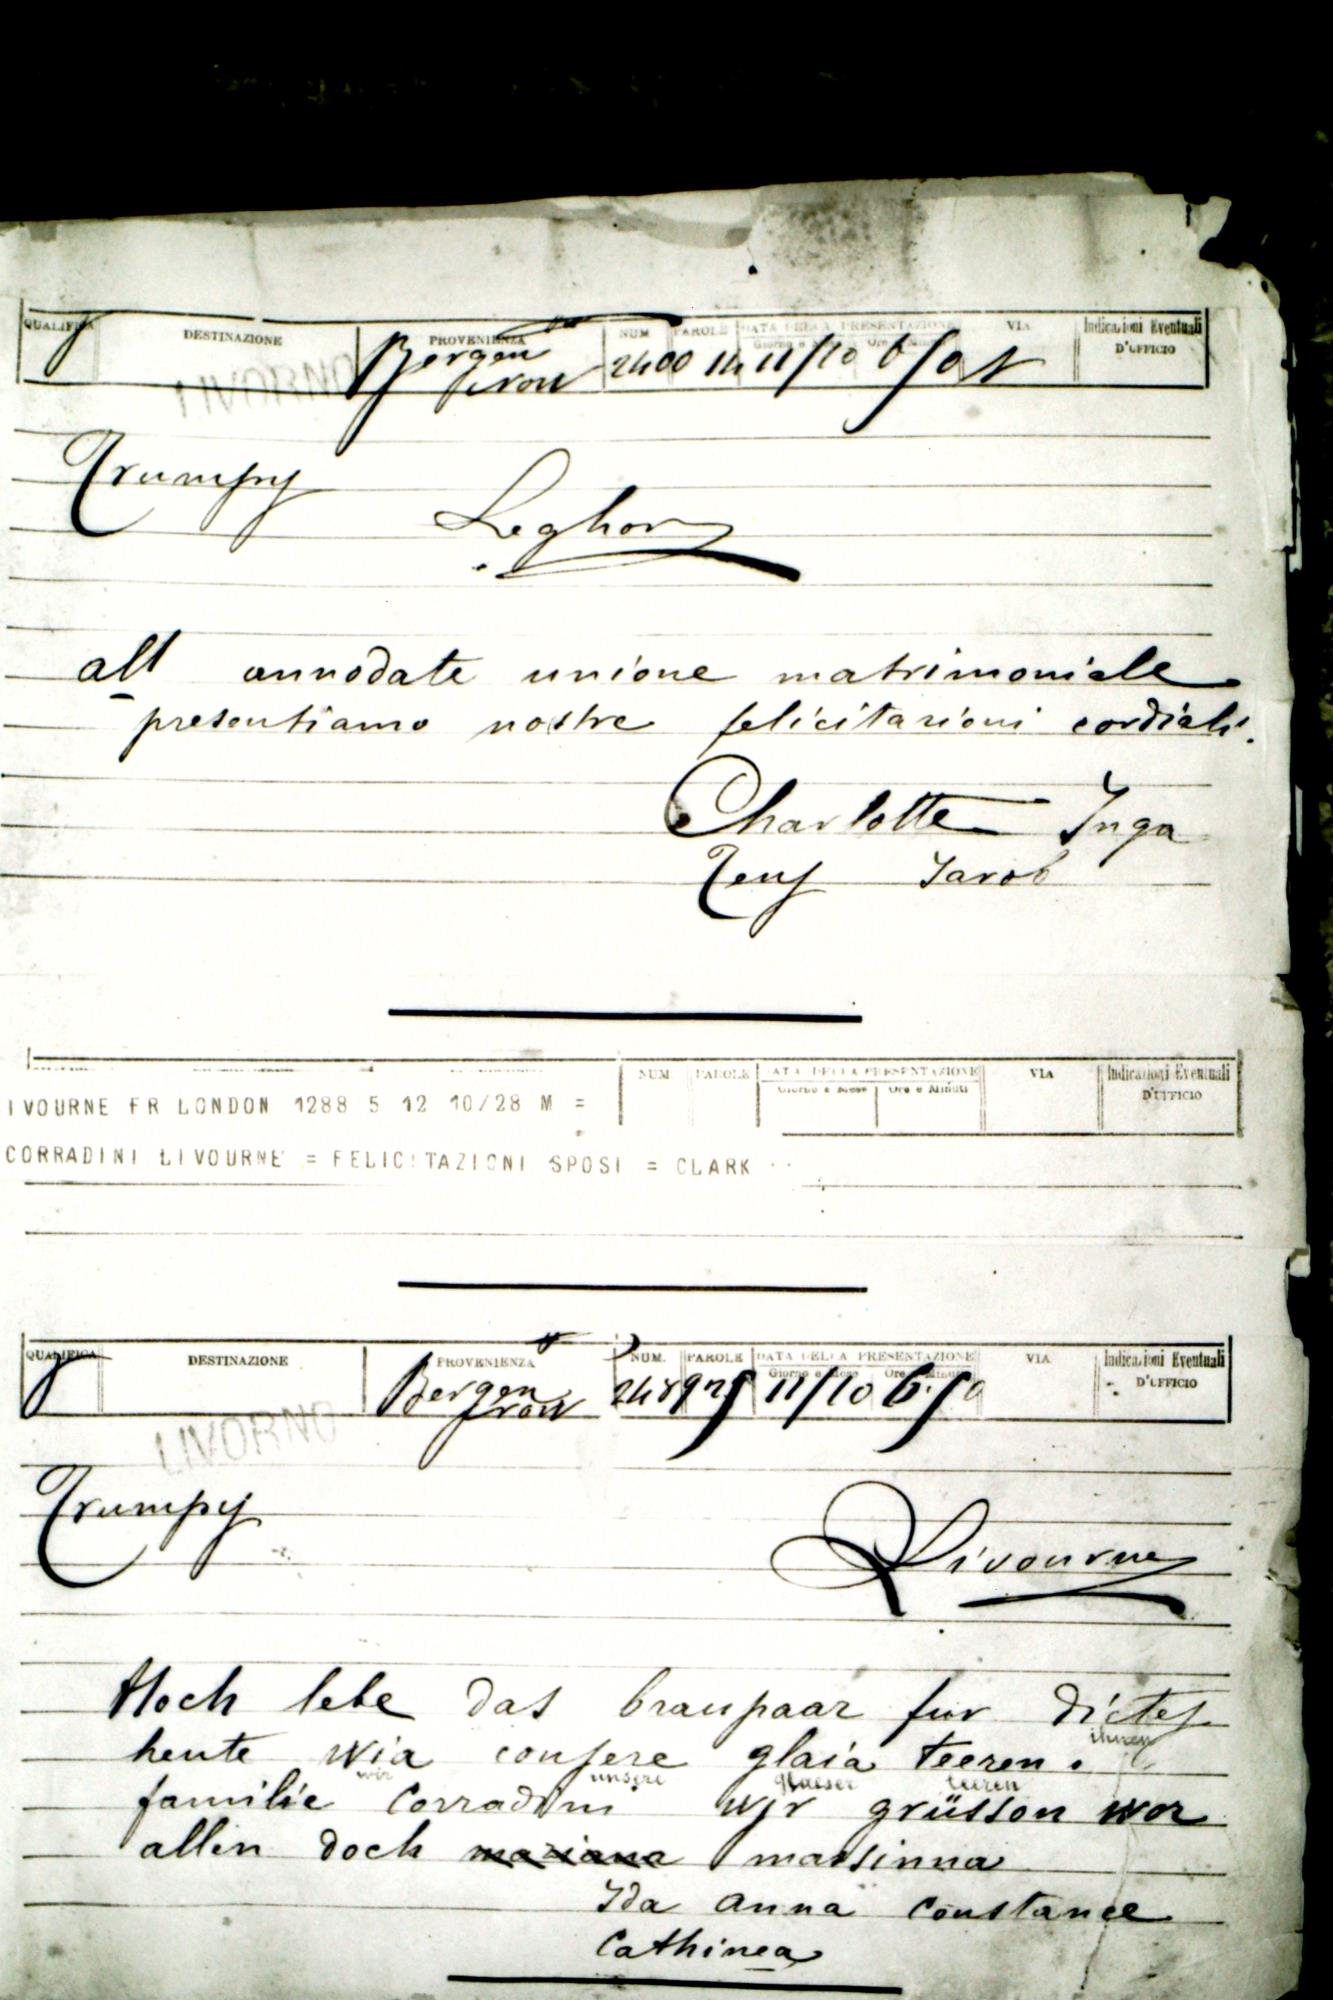 QUALIFICA DESTINAZIONE PROVENIENZA NUM. PAROLE DATA DELLA PRESENTAZIONE VIA Indicazioni Eventuali
Giorno e Mese Ore e Minuti D'UFFICIO
LIVORNO Bergen 2400 14 11/10
Trumpy
Leghorn
all annodate unione matrimoniale
presentiamo nostre felicitazioni cordiali.
Charlotte Inga
Jarob
NUM. PAROLE DATA DELLA PRESENTAZIONE VIA Indicazioni Eventuali
Giorno e Mese Ore e Minuti D'UFFICIO
IVOURNE FR LONDON 1288 5 12 10/28 M =
CORRADINI LIVOURNE = FELICITAZIONI SPOSI = CLARK
QUALIFICA DESTINAZIONE PROVENIENZA NUM. PAROLE DATA DELLA PRESENTAZIONE VIA Indicazioni Eventuali
Giorno e Mese Ore e Minuti D'UFFICIO
LIVORNO Bergen 11/10
Trumpy
Livourne
Hoch lebe das braupaar fur
ihnen
heute wia consere glaia teeren.
wir unsere glaeser leeren
familie Corradini wjr grüsson wor
allen doch mariana massinna
Ida Anna Constance
Cathinea